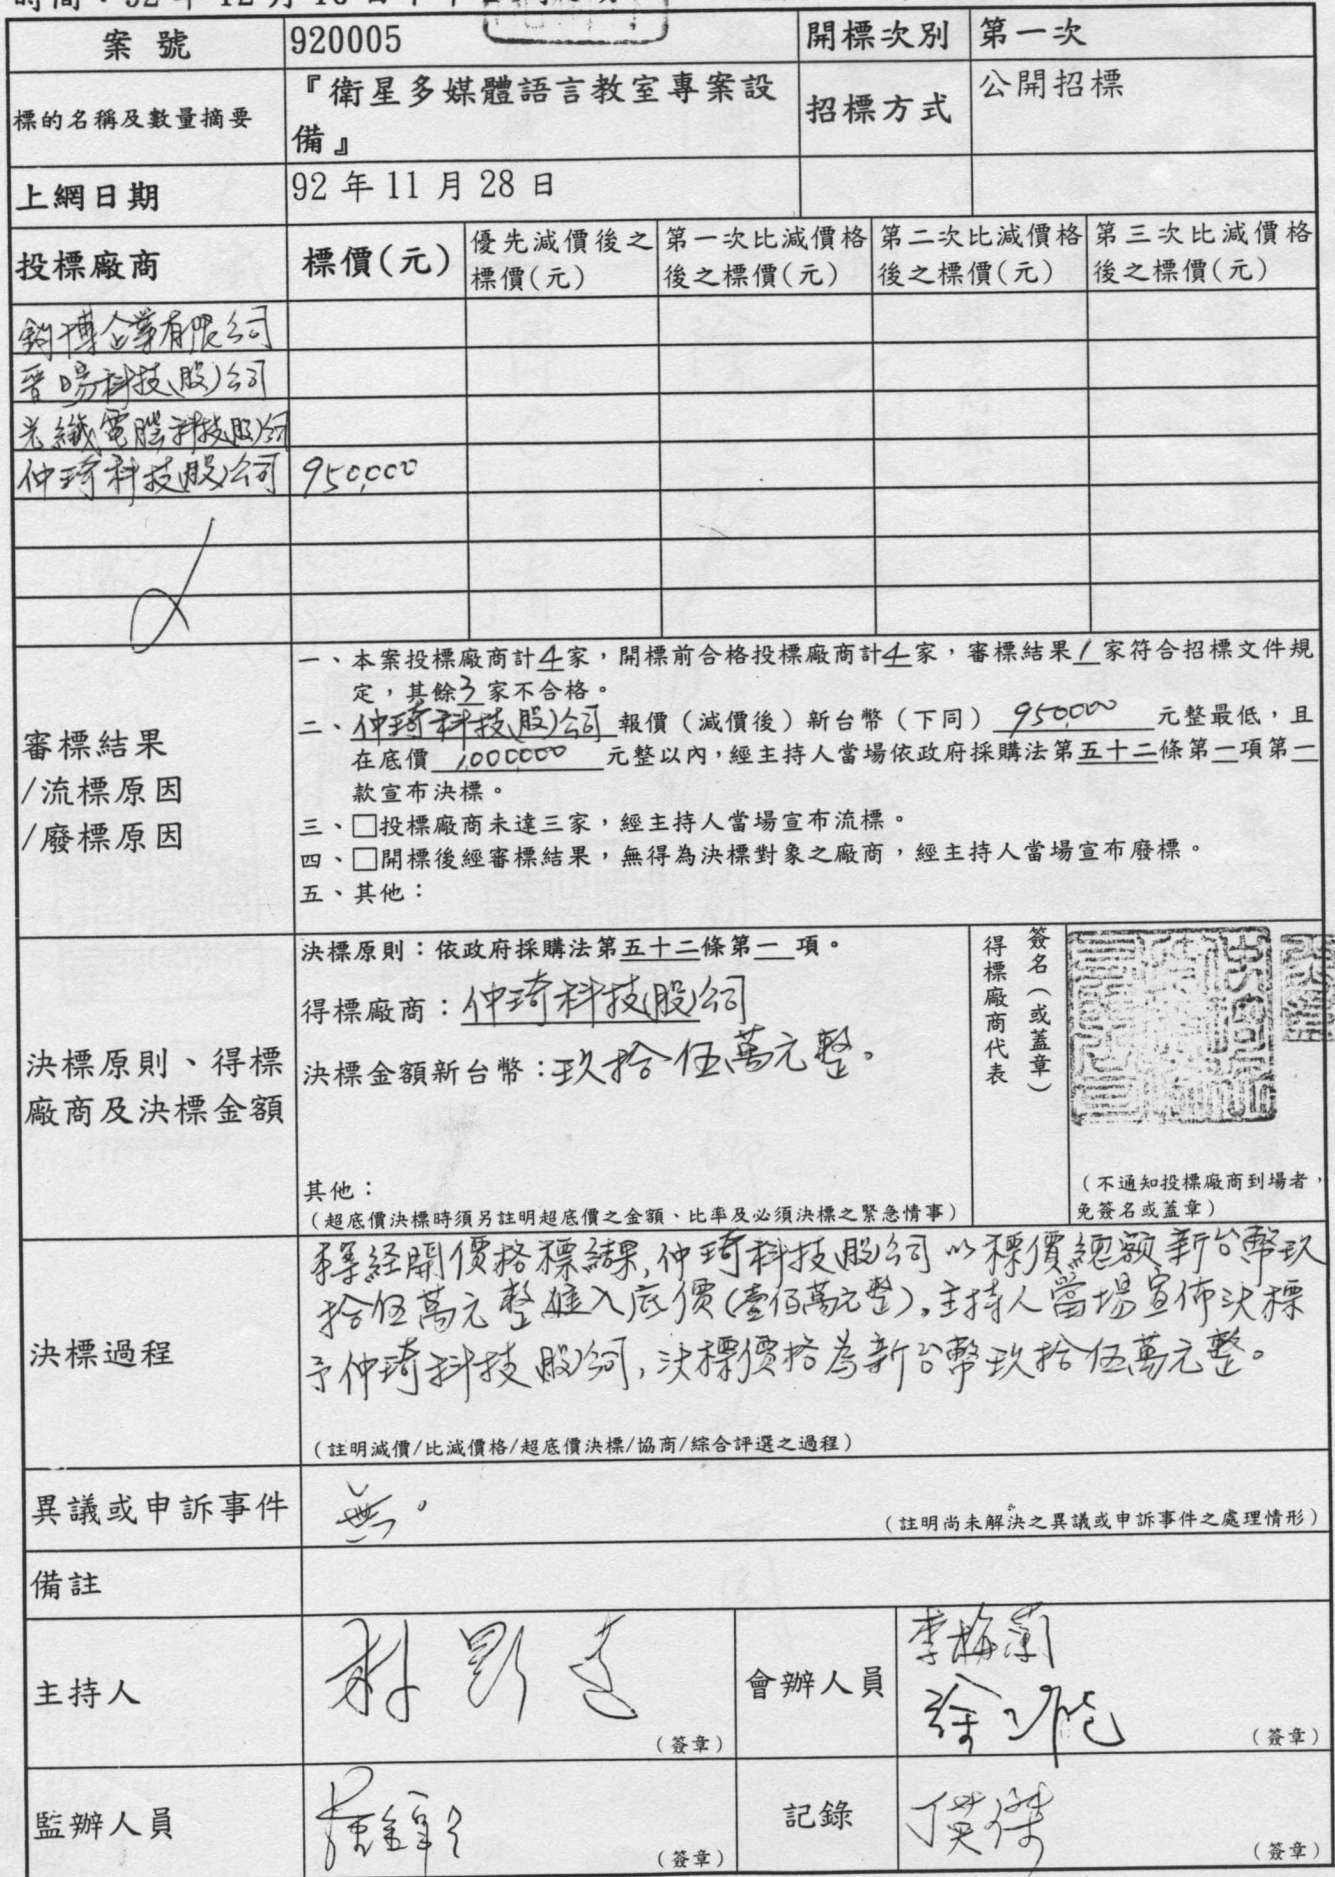 案號 920005 開標次別 第一次
標的名稱及數量摘要 『衛星多媒體語言教室專案設備』 招標方式 公開招標
上網日期 92 年 11 月 28 日
投標廠商 標價(元) 優先減價後之標價(元) 第一次比減價格後之標價(元) 第二次比減價格後之標價(元) 第三次比減價格後之標價(元)
鈞博企業有限公司
晉陽科技(股)公司
光纖電腦科技(股)公司
仲琦科技(股)公司 950,000
審標結果
/流標原因
/廢標原因
一、本案投標廠商計4家，開標前合格投標廠商計4家，審標結果1家符合招標文件規
定，其餘3家不合格。
二、仲琦科技(股)公司報價（減價後）新台幣（下同）950,000元整最低，且
在底價1,000,000元整以內，經主持人當場依政府採購法第五十二條第一項第一
款宣布決標。
三、□投標廠商未達三家，經主持人當場宣布流標。
四、□開標後經審標結果，無得為決標對象之廠商，經主持人當場宣布廢標。
五、其他：
決標原則、得標
廠商及決標金額
決標原則：依政府採購法第五十二條第一項。
得標廠商：仲琦科技(股)公司
決標金額新台幣：玖拾伍萬元整。
其他：
（超底價決標時須另註明超底價之金額、比率及必須決標之緊急情事）
得標廠商代表
簽名（或蓋章）
（不通知投標廠商到場者，
免簽名或蓋章）
決標過程
本案經開價格標結果,仲琦科技(股)公司以標價總額新台幣玖
拾伍萬元整進入底價(壹佰萬元整),主持人當場宣佈決標
予仲琦科技(股)公司,決標價格為新台幣玖拾伍萬元整。
（註明減價/比減價格/超底價決標/協商/綜合評選之過程）
異議或申訴事件 無。
（註明尚未解決之異議或申訴事件之處理情形）
備註
主持人 （簽章） 會辦人員 李梅蘭 （簽章）
監辦人員 （簽章） 記錄 丁英傑 （簽章）